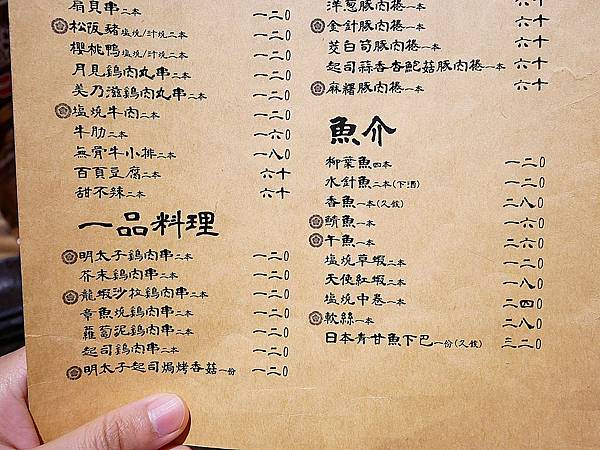 扇貝串二本 一二0
松阪豬塩燒/汁燒二本 一二0
櫻桃鴨塩燒/汁燒二本 一二0
月見鷄肉丸串二本 一二0
美乃滋鷄肉丸串二本 一二0
塩燒牛肉二本 一二0
牛肋二本 一六0
無骨牛小排二本 一八0
百頁豆腐二本 六十
甜不辣二本 六十
一品料理
明太子鷄肉串二本 一二0
芥末鷄肉串二本 一二0
龍蝦沙拉鷄肉串二本 一二0
章魚燒鷄肉串二本 一二0
蘿蔔泥鷄肉串二本 一二0
起司鷄肉串二本 一二0
明太子起司焗烤香菇一份 一二0
洋葱豚肉捲一本 六十
金針豚肉捲一本 六十
茭白筍豚肉捲一本 六十
起司蒜香杏鮑菇豚肉捲一本 六十
麻糬豚肉捲一本 六十
魚介
柳葉魚四本 一二0
水針魚二本(下酒) 一二0
香魚一本(久候) 二八0
鯖魚一本 一六0
午魚一本 二六0
塩燒草蝦二本 一二0
天使紅蝦二本 一八0
塩燒中卷一本 二四0
軟絲一本 二八0
日本青甘魚下巴一份(久候) 三二0